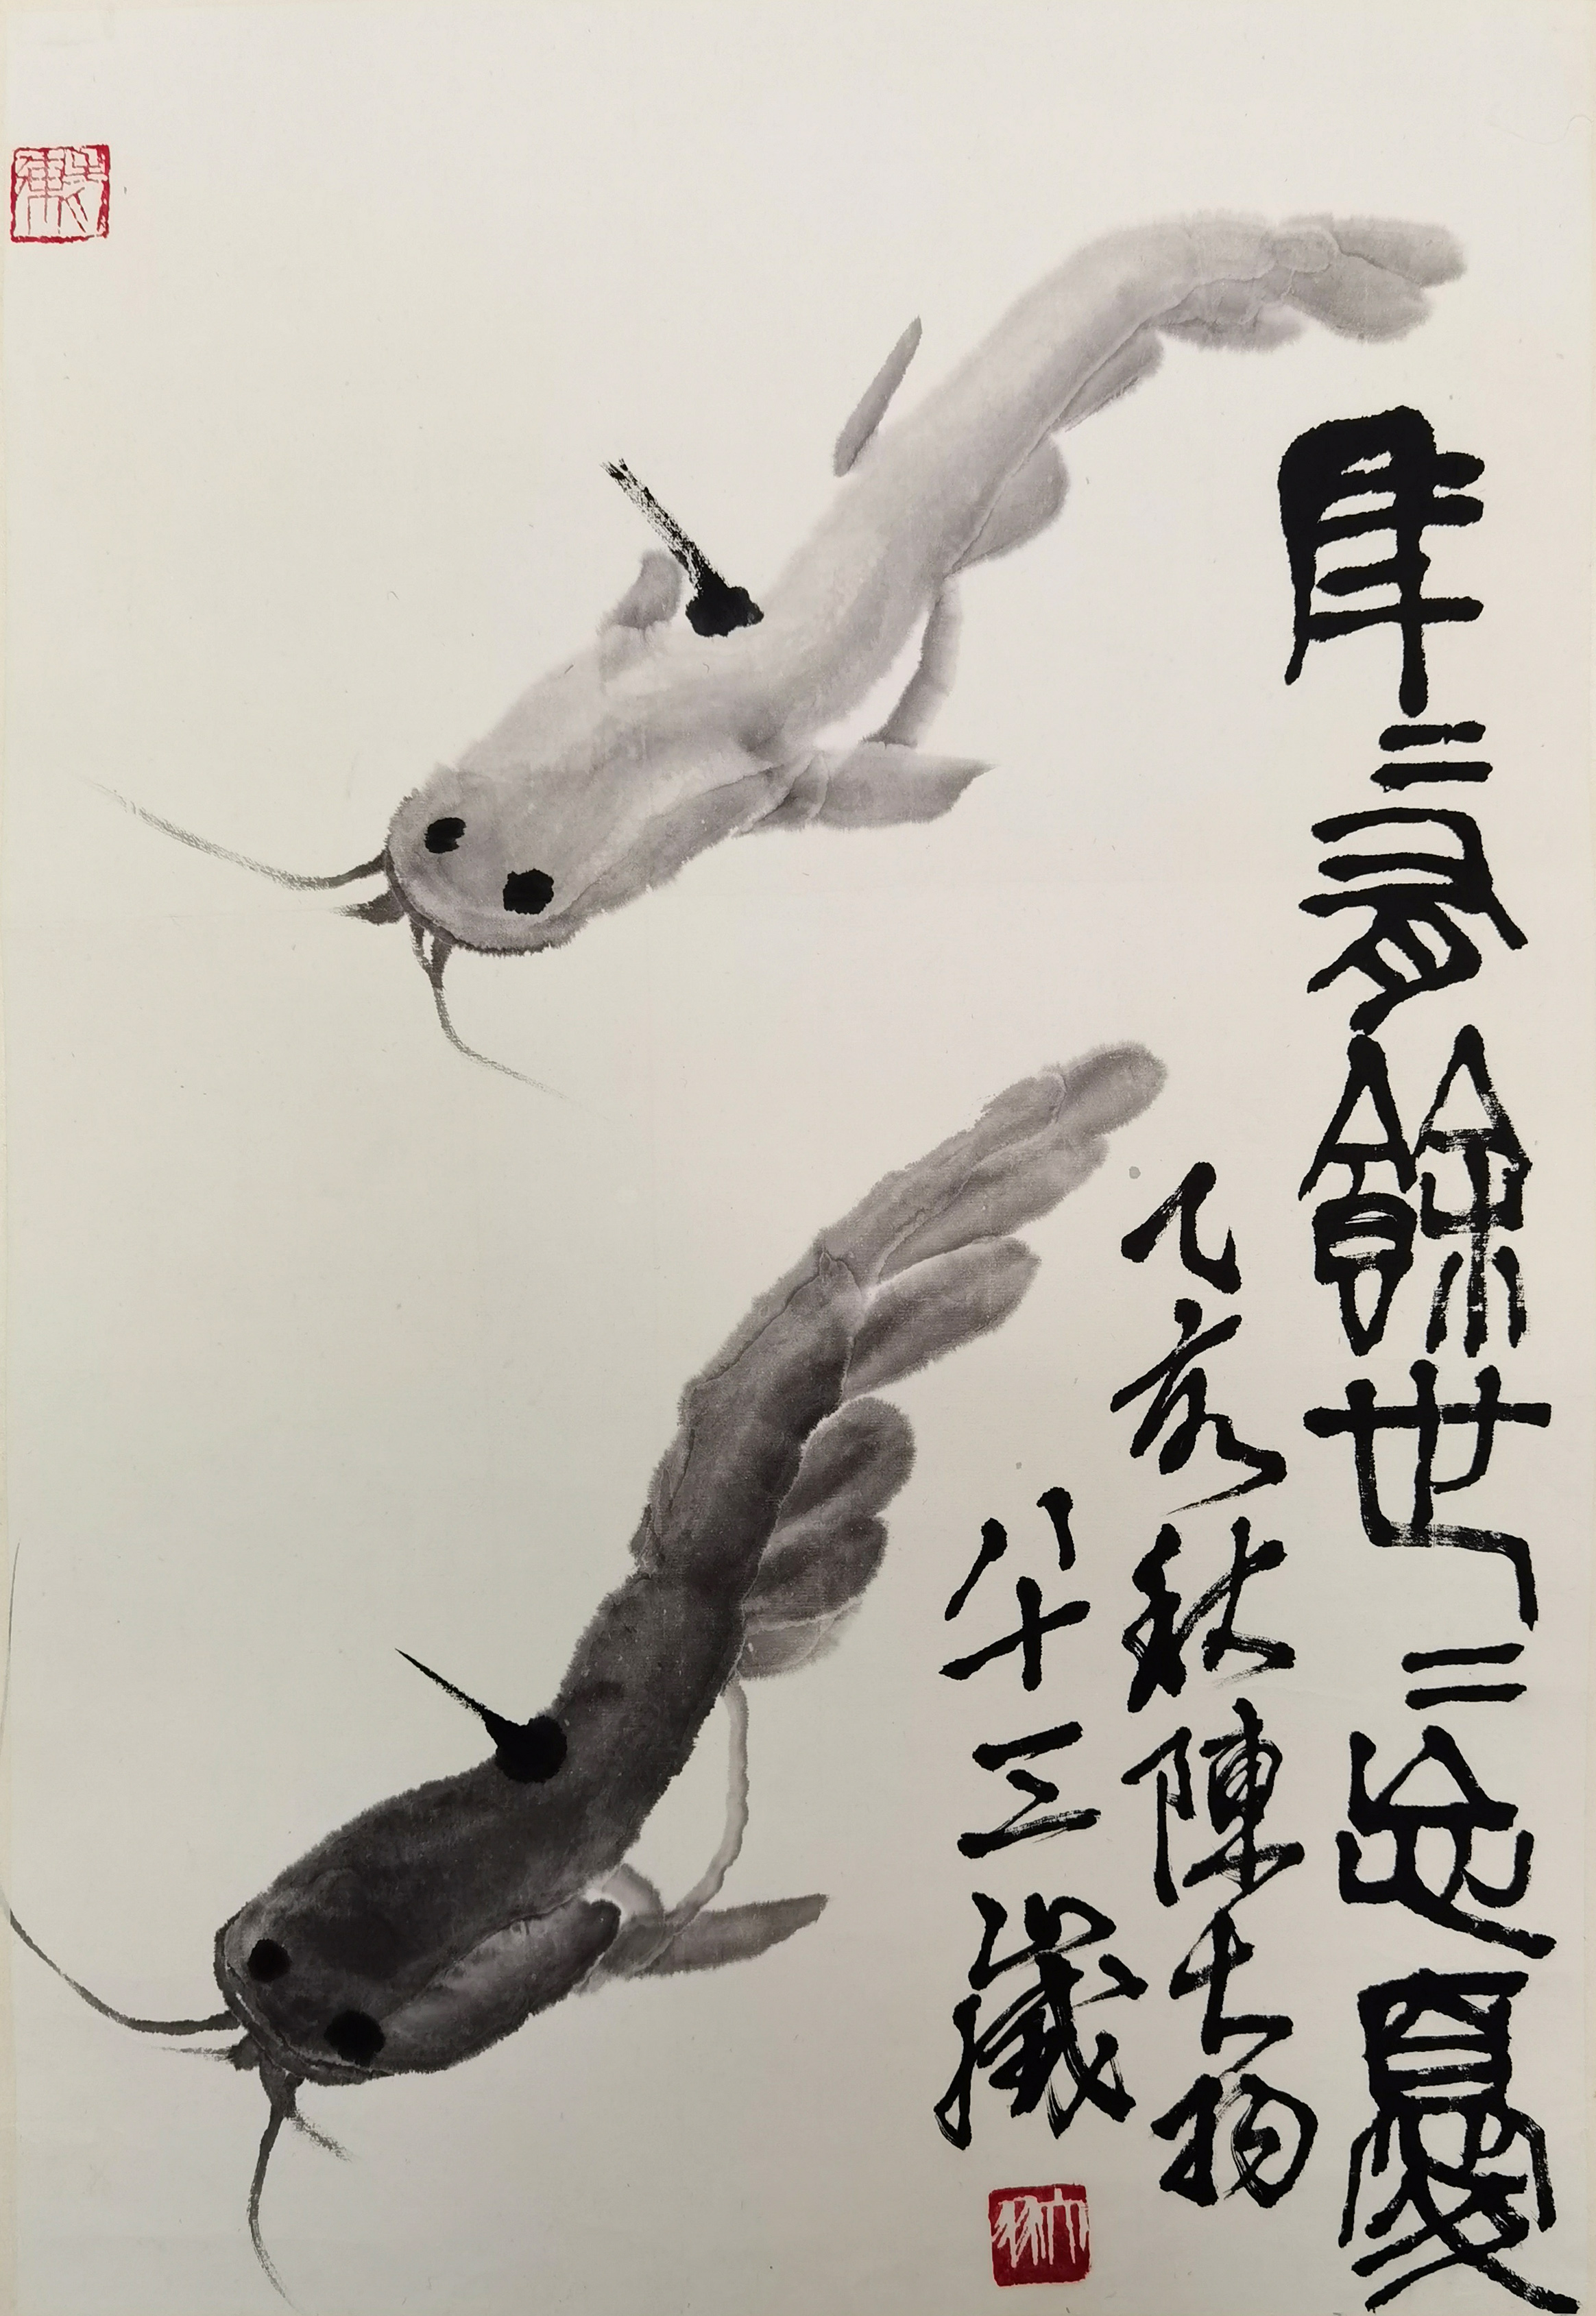 年=有餘世=忘憂
乙亥秋陳大羽
八十三歲
大羽